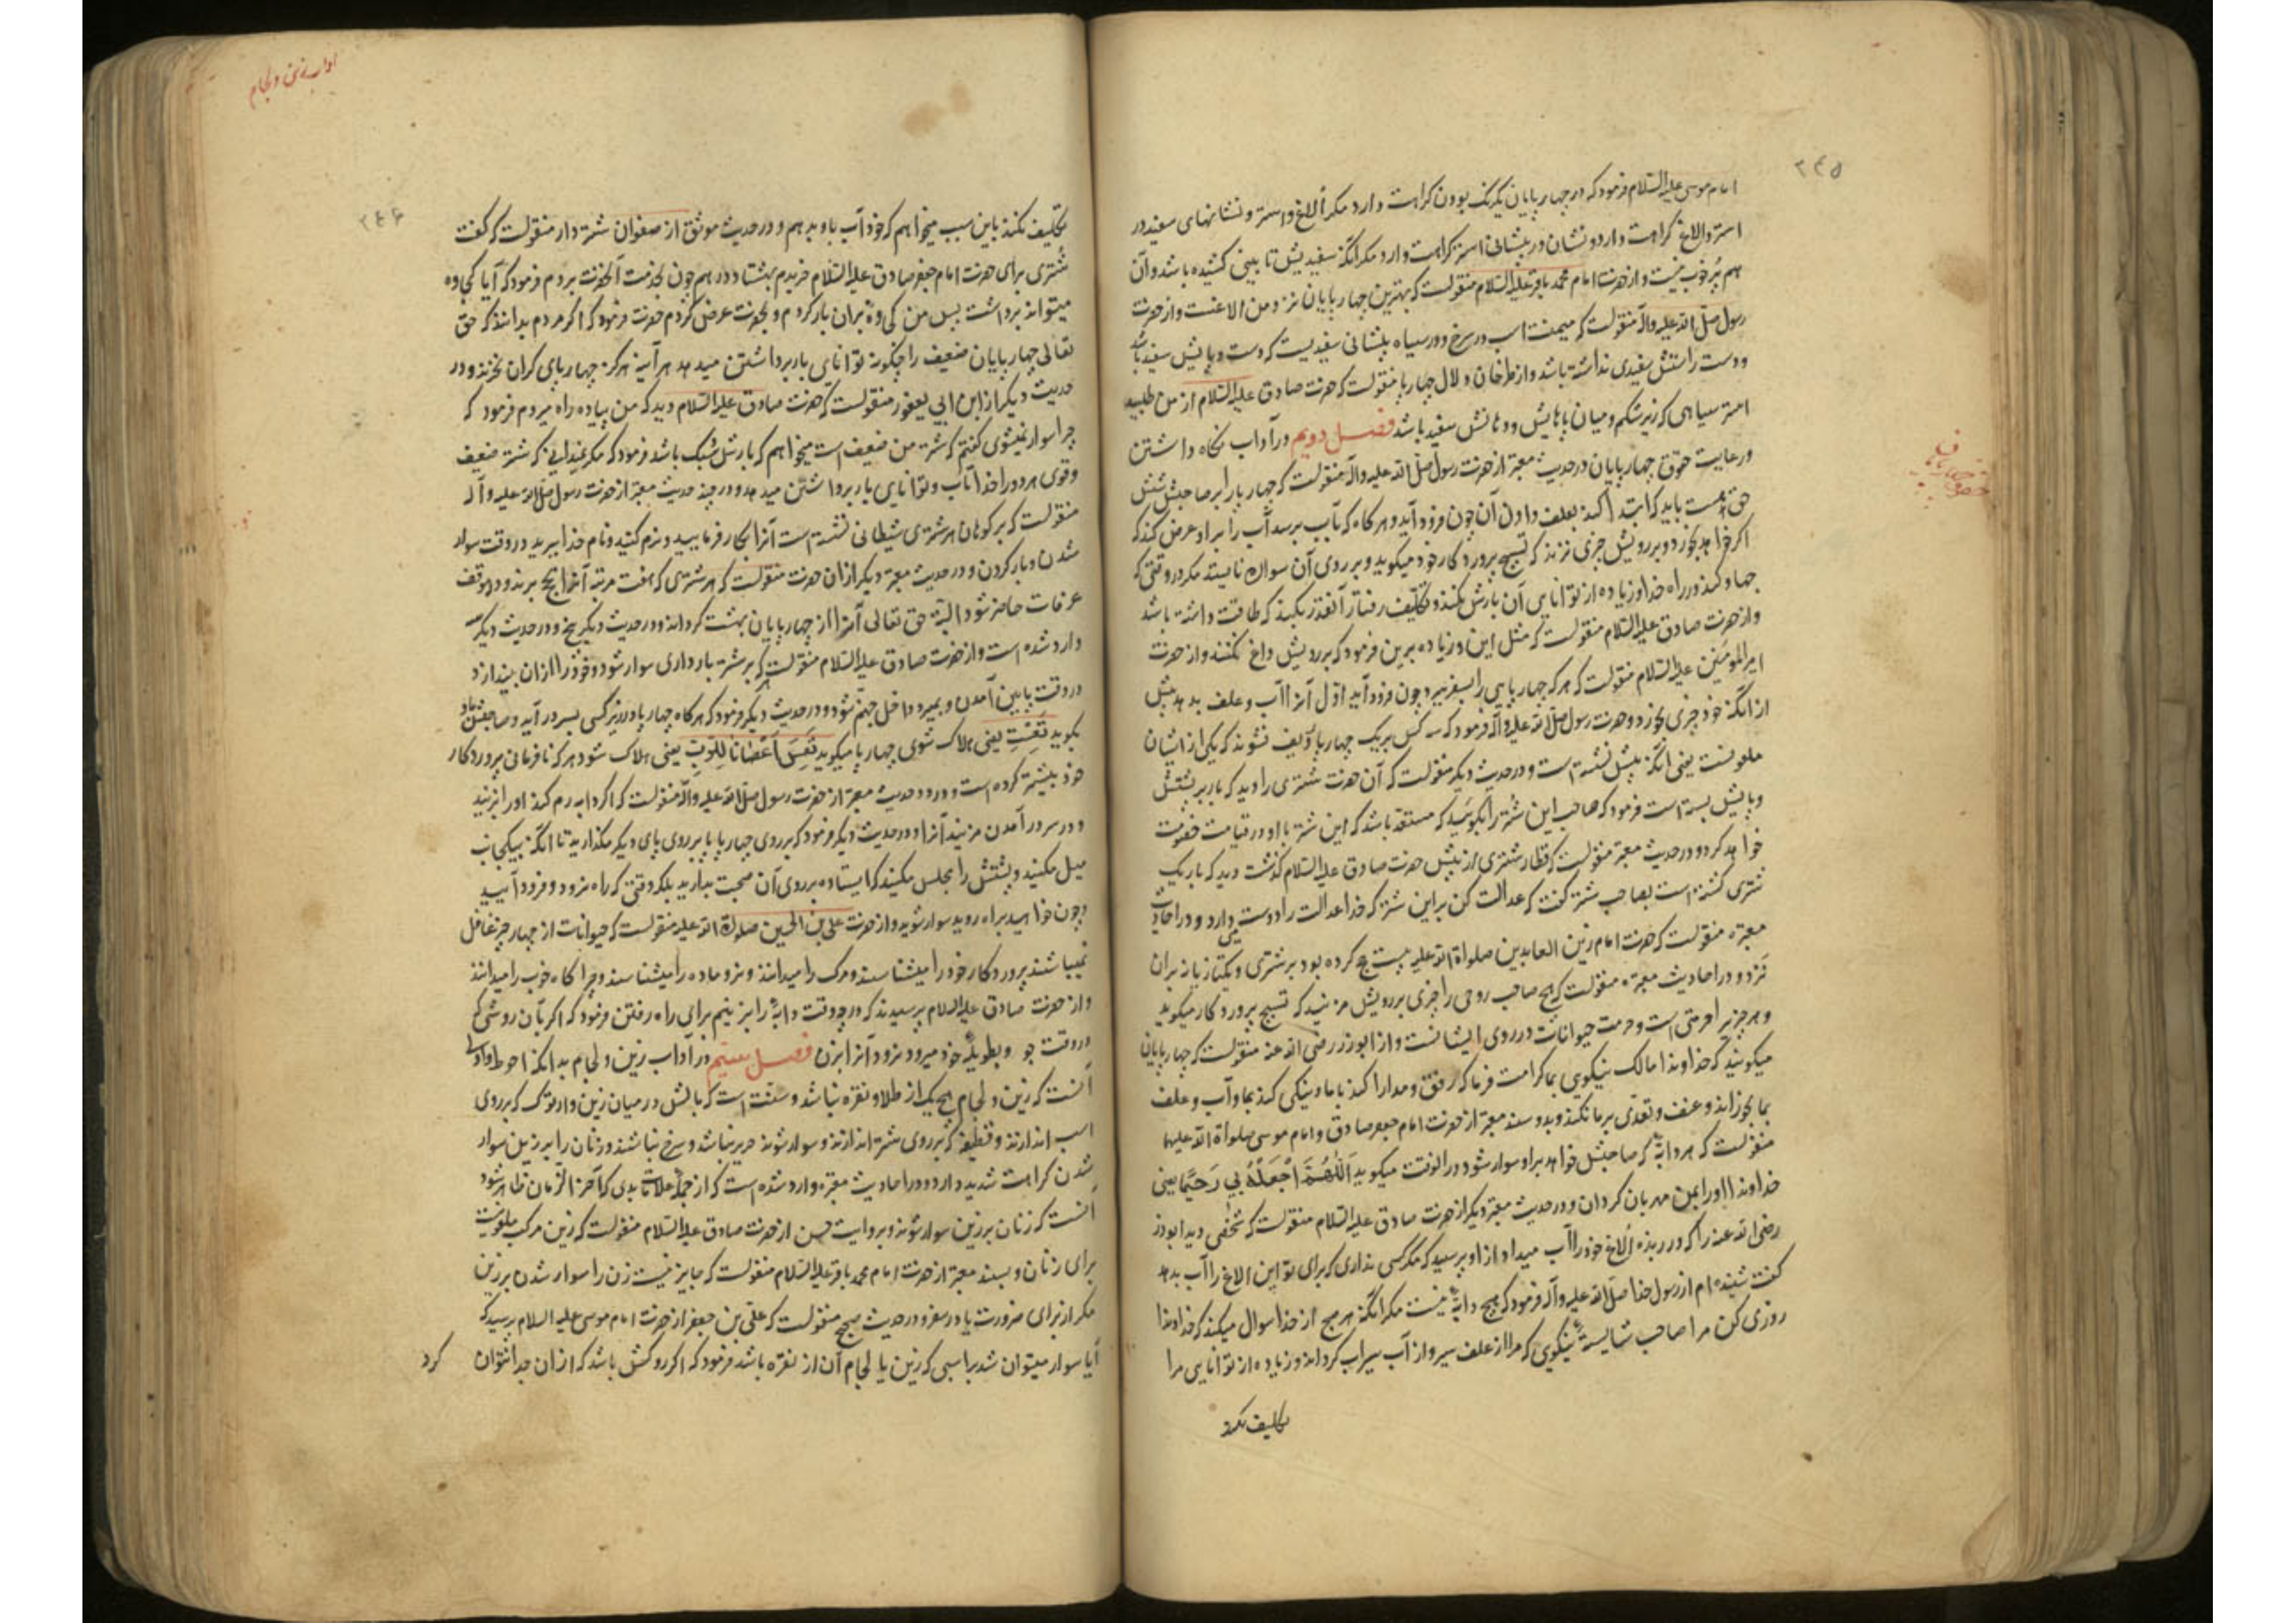 ۲۴۵
امام موسی علیه السلام فرمود که در چهارپایان یکرنک بودن کراهت دارد مکر الاغ و استر و نشانهای سفید در
استر و الاغ کراهت دارد و نشان در پیشانی استر کراهت دارد مکر انکه سفیدیش تا بینی کشیده باشد و آن
هم پر خوب نیست و از حضرت امام محمد باقر علیه السلام منقولست که بهترین چهارپایان نزد من الاغست و از حضرت
رسول صلی الله علیه و آله منقولست که میمنت اسب در سرخ و در سیاه پیشانی سفیدیست که دست و پایش سفید باشد
و دست راستش سفیدی نداشته باشد و از طرخان دلال چهارپا منقولست که حضرت صادق علیه السلام از من طلبید
استر سیاهی که زیر شکم و میان پاهایش و دهانش سفید باشد فصل دویم در آداب نکاه داشتن
و رعایت حقوق چهارپایان در حدیث معتبر از حضرت رسول صلی الله علیه و آله منقولست که چهارپا را بر صاحبش شش
حق هست باید که ابتدا کند بعلف دادن آن چون فرود آید و هرکاه که بآب برسد آب را بر او عرض کند که
اکر خواهد بخورد و بر رویش چیزی نزند که تسبیح پروردکار خود میکوید و بر روی آن سواره نایستد مکر در وقتی که
جهاد کند در راه خدا و زیاده از توانایی آن بارش نکند و تکلیف رفتار آنقدر بکند که طاقت داشته باشد
و از حضرت صادق علیه السلام منقولست که مثل این و زیاده برین فرمود که بر رویش داغ نکنند و از حضرت
امیر المؤمنین علیه السلام منقولست که هر که چهارپایی را بسفر برد چون فرود آید اول آنرا آب و علف بدهد پیش
از انکه خود چیزی بخورد و حضرت رسول صلی الله علیه و آله فرمود که سه کس بر یک چهارپا ردیف نشوند که یکی از ایشان
ملعونست یعنی انکه پیش نشسته است و در حدیث دیکر منقولست که آن حضرت شتری را دید که بار بر پشتش
و پایش بسته است فرمود که صاحب این شتر را بکوئید که مستعد باشد که این شتر با او در قیامت خصومت
خواهد کرد و در حدیث معتبر منقولست که قطار شتری از پیش حضرت صادق علیه السلام کذشت دید که بار یک
شتری کشته است بصاحب شتر کفت که عدالت کن بر این شتر که خدا عدالت را دوست میدارد و در احادیث
معتبره منقولست که حضرت امام زین العابدین صلواة الله علیه بیست حج کرده بود بر شتری و یکتازیانه بران
نزد و در احادیث معتبره منقولست که هیچ صاحب روحی را چیزی بر رویش مزنید که تسبیح پروردکار میکوید
و هر چیز را حرمتی است و حرمت حیوانات در روی ایشانست و از ابوذر رضی الله عنه منقولست که چهارپایان
میکویند که خداوندا مالک نیکویی بما کرامت فرما که رفق و مدارا کند با ما و نیکی کند بما و آب و علف
بما بخوراند و عنف و تعدی بر ما نکند و بدو سند معتبر از حضرت امام جعفر صادق و امام موسی صلواة الله علیهما
منقولست که هر دابه که صاحبش خواهد بر او سوار شود در انوقت میکوید اَللّٰهُمَّ اجْعَلْهُ بِي رَحِيمًا یعنی
خداوندا او را بمن مهربان کردان و در حدیث معتبر دیکر از حضرت صادق علیه السلام منقولست که شخصی دید ابوذر
رضی الله عنه را که در ربذه الاغ خود را آب میداد از او پرسید که مکر کسی نداری که برای تو این الاغ را آب بدهد
کفت شنیده ام از رسول خدا صلی الله علیه و آله فرمود که هیچ دابه نیست مکر انکه هر صبح از خدا سوال میکند که خداوندا
روزی کن مرا صاحب شایسته نیکویی که مرا از علف سیر و از آب سیراب کرداند و زیاده از توانایی مرا
تکلیف نکند
آداب زین و لجام
۲۴۶
تکلیف نکند باین سبب میخواهم که خود آب باو بدهم و در حدیث موثق از صفوان شتردار منقولست که کفت
شتری برای حضرت امام جعفر صادق علیه السلام خریدم بهشتاد درهم چون بخدمت آنحضرت بردم فرمود که آیا کجاوه
میتواند برداشت پس من کجاوه بران بار کردم و بحضرت عرض کردم حضرت فرمود که اکر مردم بدانند که حق
تعالی چهارپایان ضعیف را چکونه توانایی بار برداشتن میدهد هر آینه هرکز چهارپای کران نخرند و در
حدیث دیکر از ابن ابی یعفور منقولست که حضرت صادق علیه السلام دید که من پیاده راه میروم فرمود که
چرا سوار نمیشوی کفتم که شتر من ضعیف است میخواهم که بارش سبک باشد فرمود که مکر نمیدانی که شتر ضعیف
و قوی هر دو را خدا تاب و توانایی بار برداشتن میدهد و در چند حدیث معتبر از حضرت رسول صلی الله علیه و آله
منقولست که بر کوهان هر شتری شیطانی نشسته است آنرا بکار فرمایید و نرم کنید و نام خدا ببرید در وقت سوار
شدن و بار کردن و در حدیث معتبر دیکر از ان حضرت منقولست که هر شتری که هفت مرتبه آنرا بحج برند و در موقف
عرفات حاضر شود البته حق تعالی آنرا از چهارپایان بهشت کرداند و در حدیث دیکر پنج و در حدیث دیکر سه
وارد شده است و از حضرت صادق علیه السلام منقولست که هر که بر شتر بارداری سوار شود و خود را از ان بیندازد
در وقت پایین آمدن و بمیرد داخل جهنم شود و در حدیث دیکر فرمود که هرکاه چهارپا در زیر کسی بسر در آید و صاحبش باو
بکوید تَعِسْتَ یعنی هلاک شوی چهارپا میکوید تَعِسَ اَعْصَانَا لِلرَّبِّ یعنی هلاک شود هر که نافرمانی پروردکار
خود بیشتر کرده است و در دو حدیث معتبر از حضرت رسول صلی الله علیه و آله منقولست که اکر دابه رم کند او را بزنید
و در سر در آمدن مزنید آنرا و در حدیث دیکر فرمود که بر روی چهارپا پا بر روی پای دیکر مکذارید تا انکه بیکجانب
میل مکنید و پشتش را مجلس مکنید که ایستاده بر روی آن صحبت بدارید بلکه وقتی که راه نرود فرود آیید
و چون خواهید براه روید سوار شوید و از حضرت علی بن الحسین صلواة الله علیه منقولست که حیوانات از چهار چیز غافل
نمیباشند پروردکار خود را میشناسند و مرک را میدانند و نر و ماده را میشناسند و چراکاه خوب را میدانند
و از حضرت صادق علیه السلام پرسیدند که در چه وقت دابه را بزنیم برای راه رفتن فرمود که اکر بآن روشی که
در وقت جو و بطویله خود میرود نرود آنرا بزن فصل سیّم در آداب زین و لجام بدانکه احوط و اولی
آنست که زین و لجام هیچ یک از طلا و نقره نباشد و سنت است که بالش در میان زین و ارمک که بر روی
اسب اندازند و قطیفه که بر روی شتر اندازند و سوار شوند حریر نباشد و سرخ نباشد و زنان را بر زین سوار
شدن کراهت شدید دارد و در احادیث معتبره وارد شده است که از جمله علامات بدی که آخر الزمان ظاهر شود
آنست که زنان بر زین سوار شوند و بروایت حسن از حضرت صادق علیه السلام منقولست که زین مرکب ملعونیست
برای زنان و بسند معتبر از حضرت امام محمد باقر علیه السلام منقولست که جایز نیست زن را سوار شدن بر زین
مکر از برای ضرورت یا در سفر و در حدیث صحیح منقولست که علی بن جعفر از حضرت امام موسی علیه السلام پرسید که
آیا سوار میتوان شد بر اسبی که زین یا لجام آن از نقره باشد فرمود که اکر روکش باشد که از ان جدا نتوان کرد